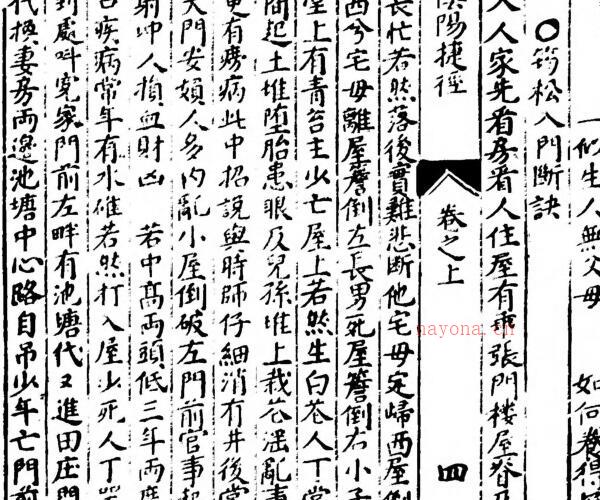 一似生人無父母 如何養得
○筠松入門断訣
人人家先看房看人住屋有乘張門楼屋脊
陽捷徑
卷之上
四
長忙若然落後實難悲断他宅母定歸西屋倒
西兮宅母離屋簷倒左長男死屋簷倒右小子
堂上有青苔主少亡屋上若然生白花人丁
間起土堆堕胎患眼及兒孫堆上栽花淫亂
更有癆病此中招説與時師仔細消有井後堂
大門安頻人多内亂小屋倒破左門前官事
射冲人損血財凶 若中高两頭低三年两度
疾病常年有水碓若然打入屋少死人丁
到處叫寃家門前左畔有池塘代又進田庄門
代换妻房两邊池塘中心路自吊少年亡門前
nayona.cn